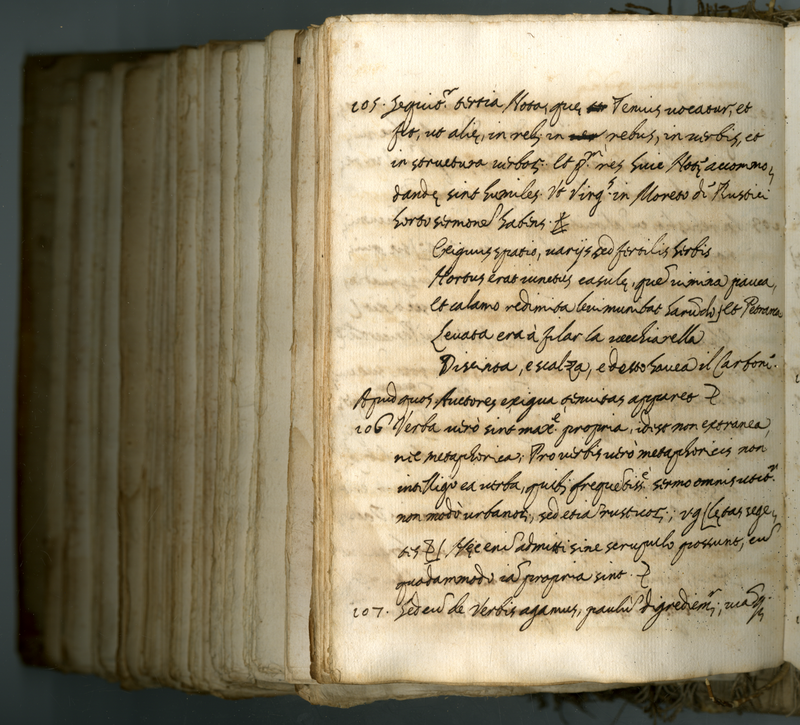 105. Sequit^r. tertia Nota, quę Tenius uocatur, et
fit, ut alię, in reb, in rebus, in uerbis, et
in structura uerboꝝ. Et p^m. res huic Notę accommo,
dandę sint humiles. Ut Virg^s. in Moreto dũ Rustici
horto sermonẽ habens.
Exiguus spatio, uarijs sed fertilis herbis
Hortus erat iunctus casulę, quẽ uimina pauca,
Et calamo rediuiua leui munibat harũdo; Et Petrarca
Leuata era à filar la uecchiarella
Discinta, e scalza, e desto hauea il Carbon.
Apud quos Auctores exigua tenuitas apparet
106 Verba uerò sint max^e. propria, idest non extranea,
nec metaphorica; Pro uerbis uerò metaphoricis non
intelligo ea uerba, quib frequẽtiss^e. sermo omnis utit^r.
non modò urbanoꝝ, sed etiã rusticoꝝ; ug Lętas sege,
tes. Hęc eni admitti sine scrupulo possunt, cũ
quodammodo iã propria sint.
107. Sed cũ de Verbis agamus, paulũ digrediem^r;